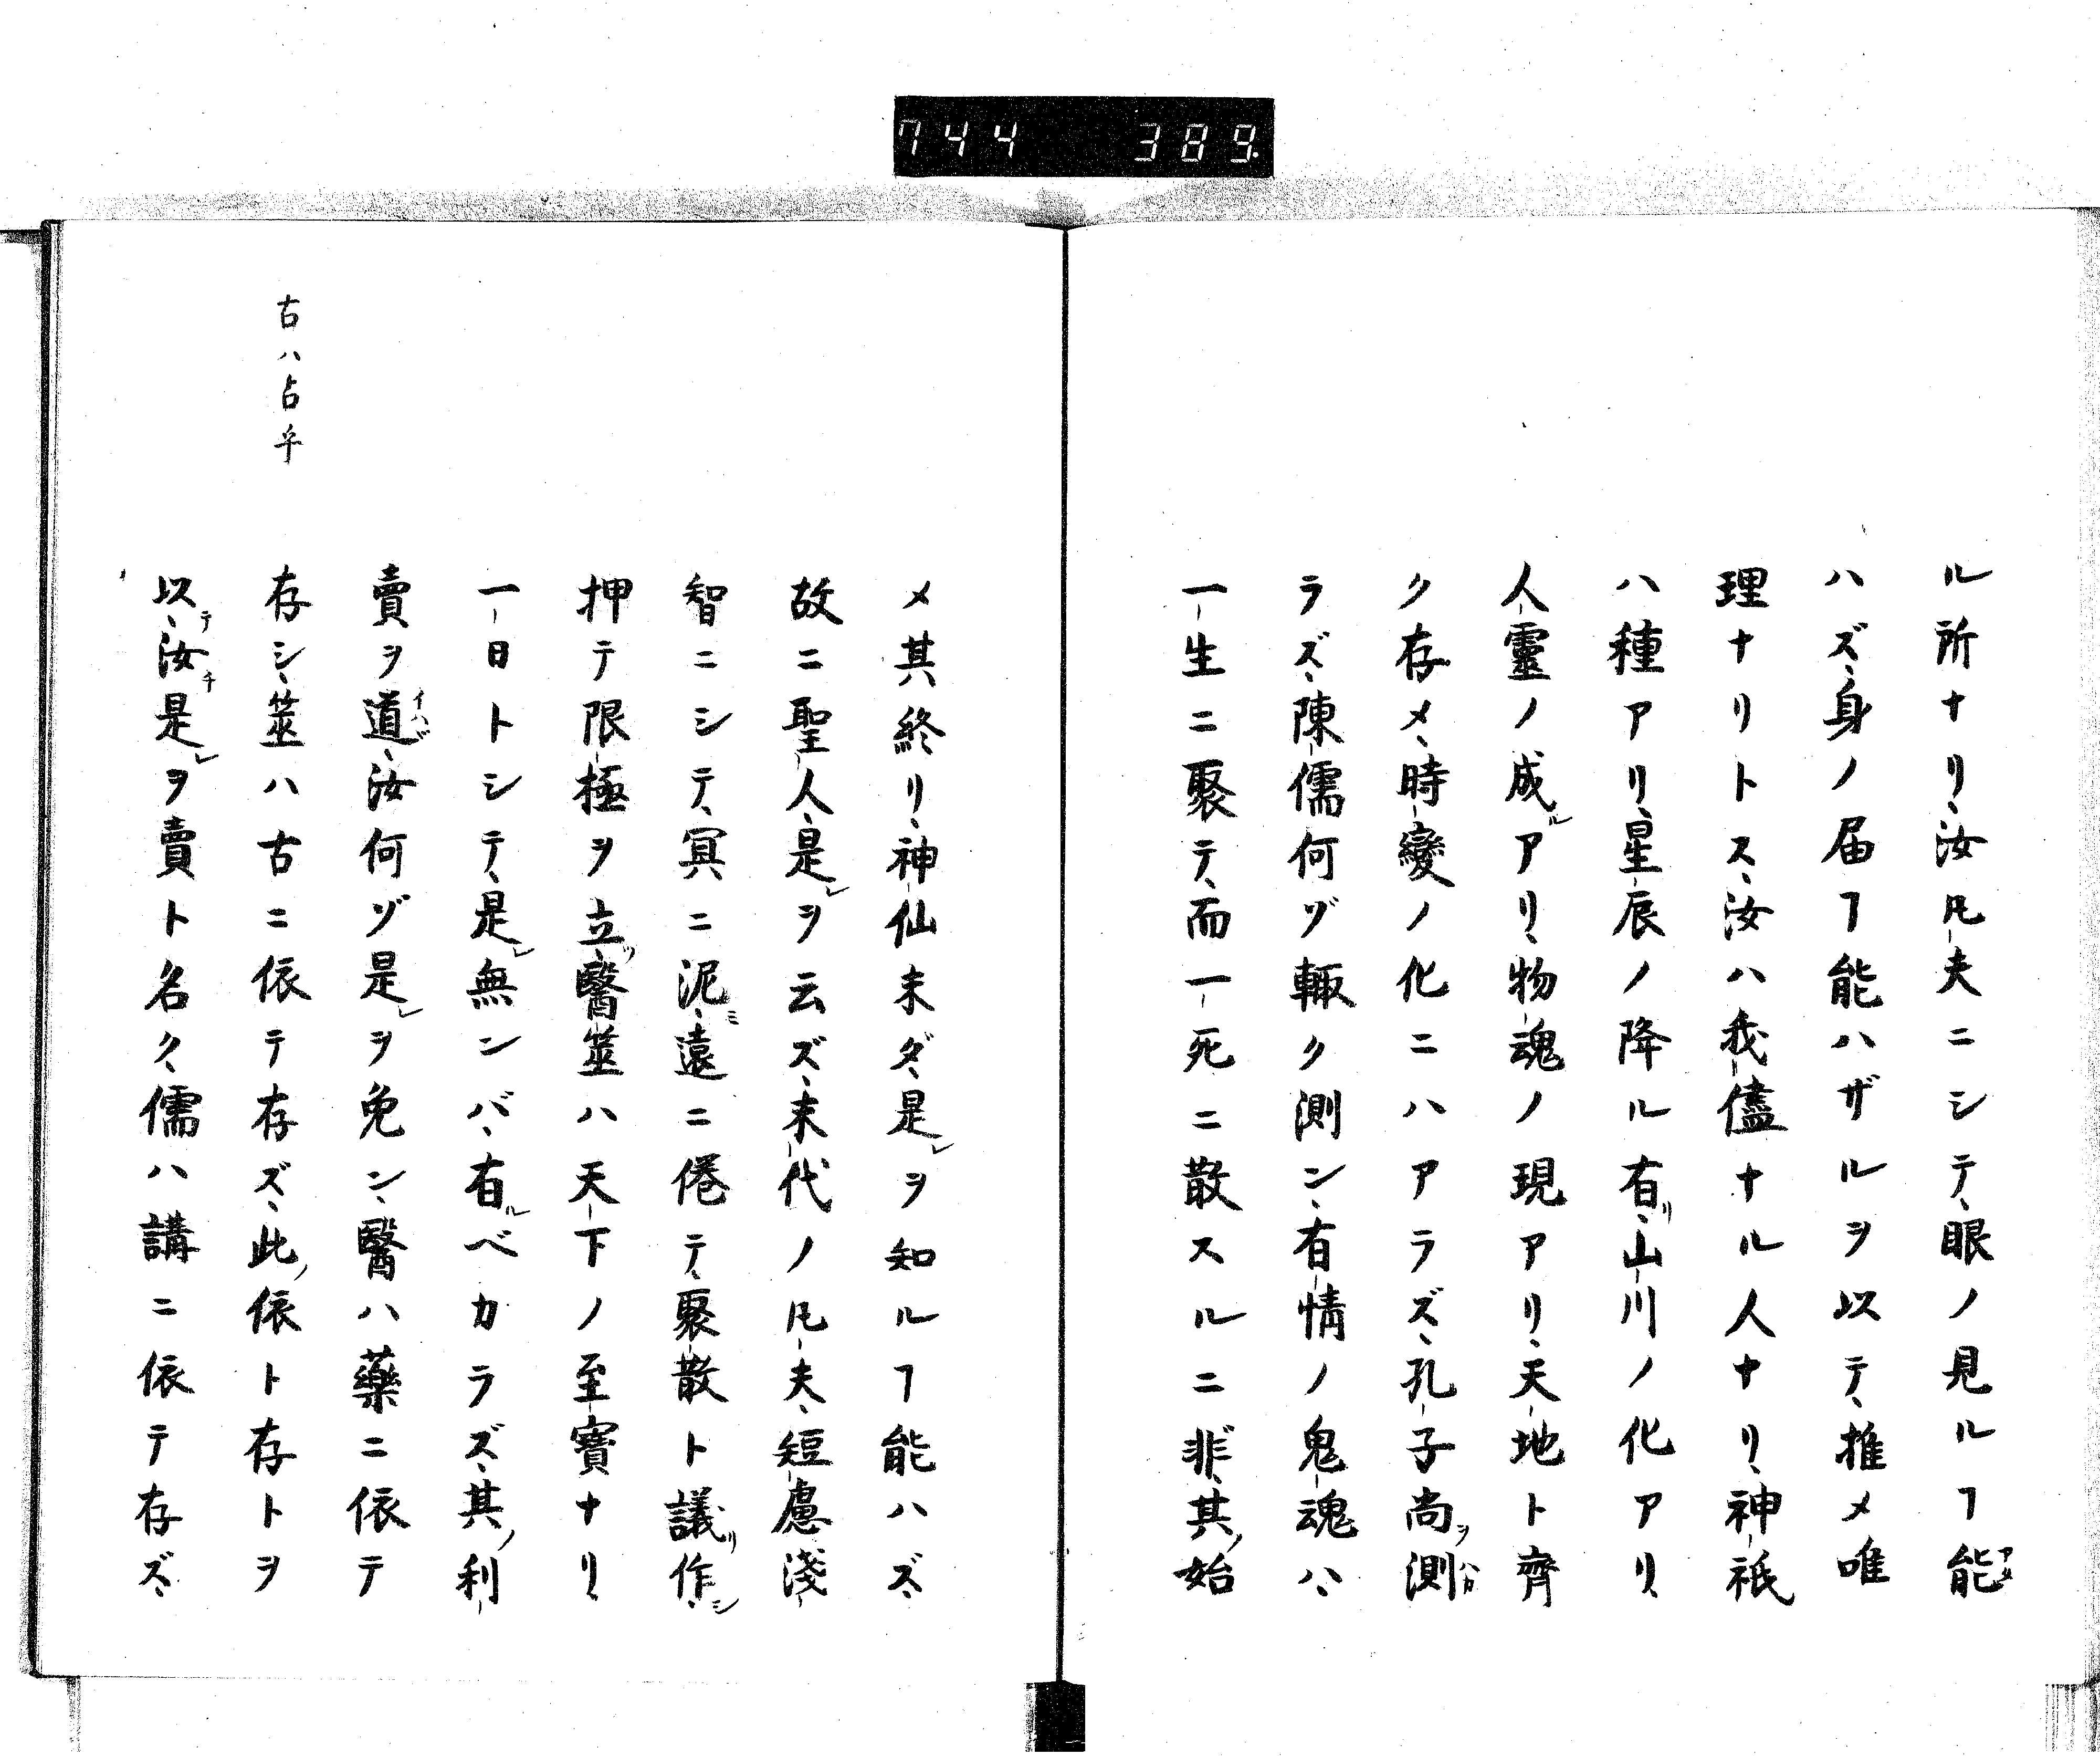 744 389
ル所ナリ、汝凡夫ニシテ、眼ノ見ルヿ能
ハズ、身ノ届ヿ能ハザルヲ以テ、推メ唯
理ナリトス、汝ハ我儘ナル人ナリ、神祇
ハ種アリ、星辰ノ降ル有リ、山川ノ化アリ、
人靈ノ成ルアリ、物魂ノ現アリ、天地ト齊
ク存メ、時變ノ化ニハアラズ、孔子尚ヲ測
ラズ、陳儒何ゾ輙ク測ン、有情ノ鬼魂ハ、
一生ニ聚テ、而一死ニ散スルニ非、其ノ始
メ其終リ、神仙未ダ是レヲ知ルヿ能ハズ、
故ニ聖人是レヲ云ズ、末代ノ凡夫、短慮淺
智ニシテ、冥ニ泥ミ、遠ニ倦テ、聚散ト議リ作シ、
押テ限極ヲ立リ、醫筮ハ天下ノ至寶ナリ、
一日トシテ、是レ無ンバ、有ルベカラズ、其ノ利
賣ヲ道イハバ、汝何ゾ是レヲ免ン、醫ハ藥ニ依テ
存シ、筮ハ古ニ依テ存ズ、此ノ依ト存トヲ
以テ、汝チ是レヲ賣ト名ク、儒ハ講ニ依テ存ズ、
古ハ占乎